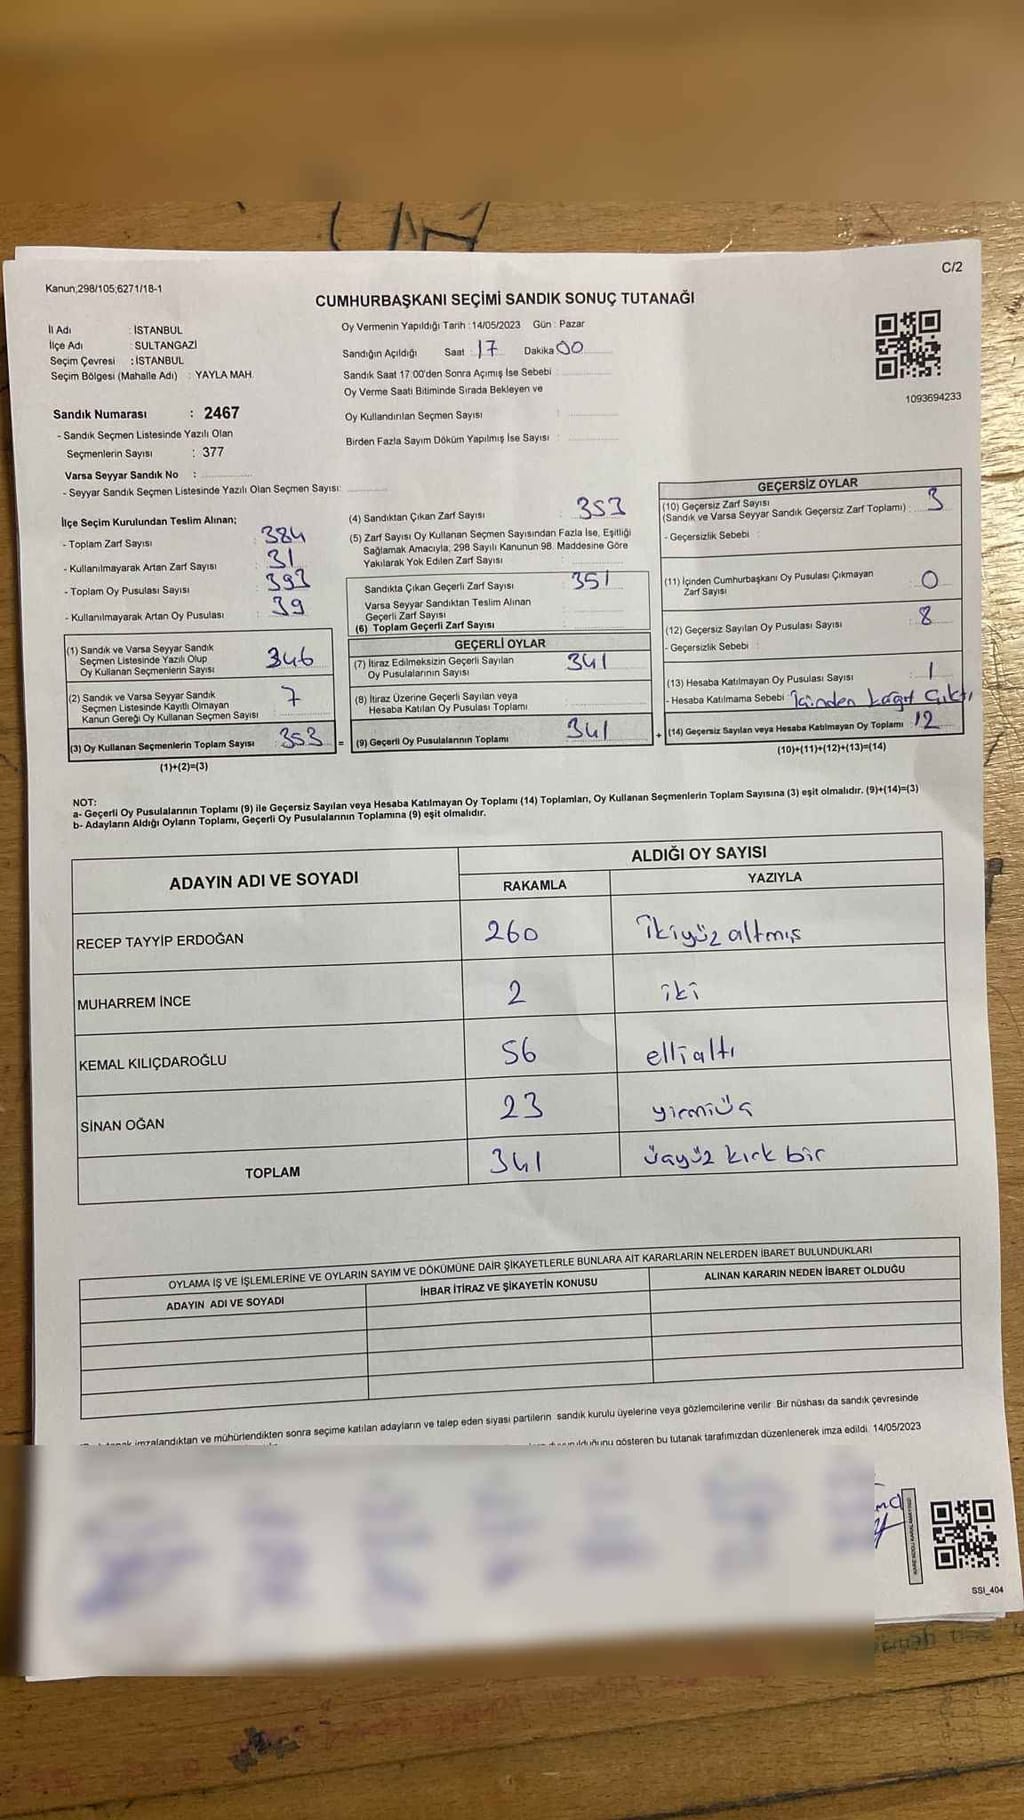 C/2
Kanun,298/105;6271/18-1
CUMHURBAŞKANI SEÇİMİ SANDIK SONUÇ TUTANAĞI
İl Adı : İSTANBUL
İlçe Adı : SULTANGAZİ
Seçim Çevresi : İSTANBUL
Seçim Bölgesi (Mahalle Adı) : YAYLA MAH.
Sandık Numarası : 2467
- Sandık Seçmen Listesinde Yazılı Olan
Seçmenlerin Sayısı : 377
Varsa Seyyar Sandık No :
- Seyyar Sandık Seçmen Listesinde Yazılı Olan Seçmen Sayısı:
Oy Vermenin Yapıldığı Tarih : 14/05/2023 Gün : Pazar
Sandığın Açıldığı Saat : 17 Dakika 00
Sandık Saat 17:00'den Sonra Açımış İse Sebebi :
Oy Verme Saati Bitiminde Sırada Bekleyen ve
Oy Kullandırılan Seçmen Sayısı :
Birden Fazla Sayım Döküm Yapılmış İse Sayısı :
1093694233
İlçe Seçim Kurulundan Teslim Alınan;
- Toplam Zarf Sayısı : 384
- Kullanılmayarak Artan Zarf Sayısı : 31
- Toplam Oy Pusulası Sayısı : 393
- Kullanılmayarak Artan Oy Pusulası : 39
(1) Sandık ve Varsa Seyyar Sandık
Seçmen Listesinde Yazılı Olup
Oy Kullanan Seçmenlerin Sayısı : 346
(2) Sandık ve Varsa Seyyar Sandık
Seçmen Listesinde Kayıtlı Olmayan
Kanun Gereği Oy Kullanan Seçmen Sayısı : 7
(3) Oy Kullanan Seçmenlerin Toplam Sayısı : 353
(1)+(2)=(3)
(4) Sandıktan Çıkan Zarf Sayısı : 353
(5) Zarf Sayısı Oy Kullanan Seçmen Sayısından Fazla İse, Eşitliği
Sağlamak Amacıyla, 298 Sayılı Kanunun 98. Maddesine Göre
Yakılarak Yok Edilen Zarf Sayısı :
Sandıkta Çıkan Geçerli Zarf Sayısı : 351
Varsa Seyyar Sandıktan Teslim Alınan
Geçerli Zarf Sayısı :
(6) Toplam Geçerli Zarf Sayısı :
GEÇERLİ OYLAR
(7) İtiraz Edilmeksizin Geçerli Sayılan
Oy Pusulasının Sayısı : 341
(8) İtiraz Üzerine Geçerli Sayılan veya
Hesaba Katılan Oy Pusulası Toplamı :
= (9) Geçerli Oy Pusulalarının Toplamı : 341
GEÇERSİZ OYLAR
(10) Geçersiz Zarf Sayısı
(Sandık ve Varsa Seyyar Sandık Geçersiz Zarf Toplamı) : 3
- Geçersizlik Sebebi :
(11) İçinden Cumhurbaşkanı Oy Pusulası Çıkmayan
Zarf Sayısı : 0
(12) Geçersiz Sayılan Oy Pusulası Sayısı : 8
- Geçersizlik Sebebi :
(13) Hesaba Katılmayan Oy Pusulası Sayısı : 1
- Hesaba Katılmama Sebebi : İçinden kağıt çıktı
+ (14) Geçersiz Sayılan veya Hesaba Katılmayan Oy Toplamı : 12
(10)+(11)+(12)+(13)=(14)
NOT:
a- Geçerli Oy Pusulalarının Toplamı (9) ile Geçersiz Sayılan veya Hesaba Katılmayan Oy Toplamı (14) Toplamları, Oy Kullanan Seçmenlerin Toplam Sayısına (3) eşit olmalıdır. (9)+(14)=(3)
b- Adayların Aldığı Oyların Toplamı, Geçerli Oy Pusulalarının Toplamına (9) eşit olmalıdır.
ADAYIN ADI VE SOYADI ALDIĞI OY SAYISI
RAKAMLA YAZIYLA
RECEP TAYYİP ERDOĞAN 260 İkiyüz altmış
MUHARREM İNCE 2 iki
KEMAL KILIÇDAROĞLU 56 ellialtı
SİNAN OĞAN 23 yirmiüç
TOPLAM 341 üçyüz kırk bir
OYLAMA İŞ VE İŞLEMLERİNE VE OYLARIN SAYIM VE DÖKÜMÜNE DAİR ŞİKAYETLERLE BUNLARA AİT KARARLARIN NELERDEN İBARET BULUNDUKLARI
ADAYIN ADI VE SOYADI İHBAR İTİRAZ VE ŞİKAYETİN KONUSU ALINAN KARARIN NEDEN İBARET OLDUĞU
imzalandıktan ve mühürlendikten sonra seçime katılan adayların ve talep eden siyasi partilerin sandık kurulu üyelerine veya gözlemcilerine verilir. Bir nüshası da sandık çevresinde
gösteren bu tutanak tarafımızdan düzenlenerek imza edildi. 14/05/2023
SSI_404